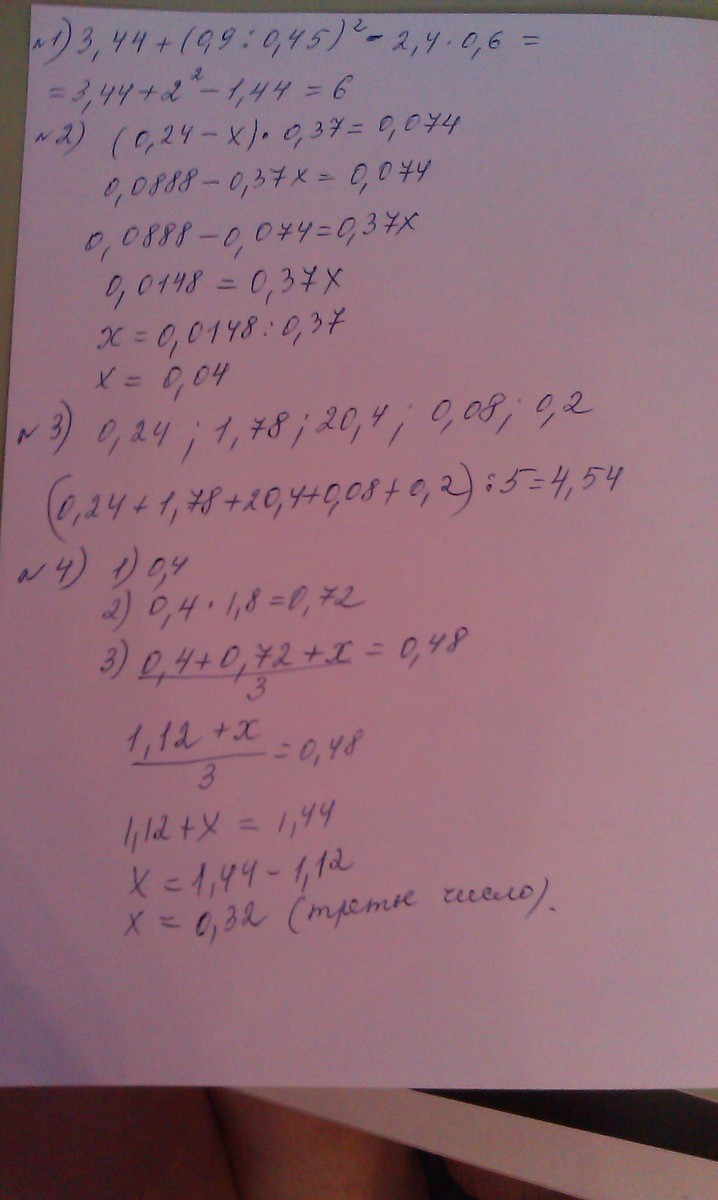 №1) 3,44 + (0,9 : 0,45)² - 2,4 · 0,6 =
= 3,44 + 2² - 1,44 = 6
№2) (0,24 - x) · 0,37 = 0,074
0,0888 - 0,37x = 0,074
0,0888 - 0,074 = 0,37x
0,0148 = 0,37x
x = 0,0148 : 0,37
x = 0,04
№3) 0,24 ; 1,78 ; 20,4 ; 0,08 ; 0,2
(0,24 + 1,78 + 20,4 + 0,08 + 0,2) : 5 = 4,54
№4) 1) 0,4
2) 0,4 · 1,8 = 0,72
3) 0,4 + 0,72 + x = 0,48
3
1,12 + x
= 0,48
3
1,12 + x = 1,44
x = 1,44 - 1,12
x = 0,32 (третье число).